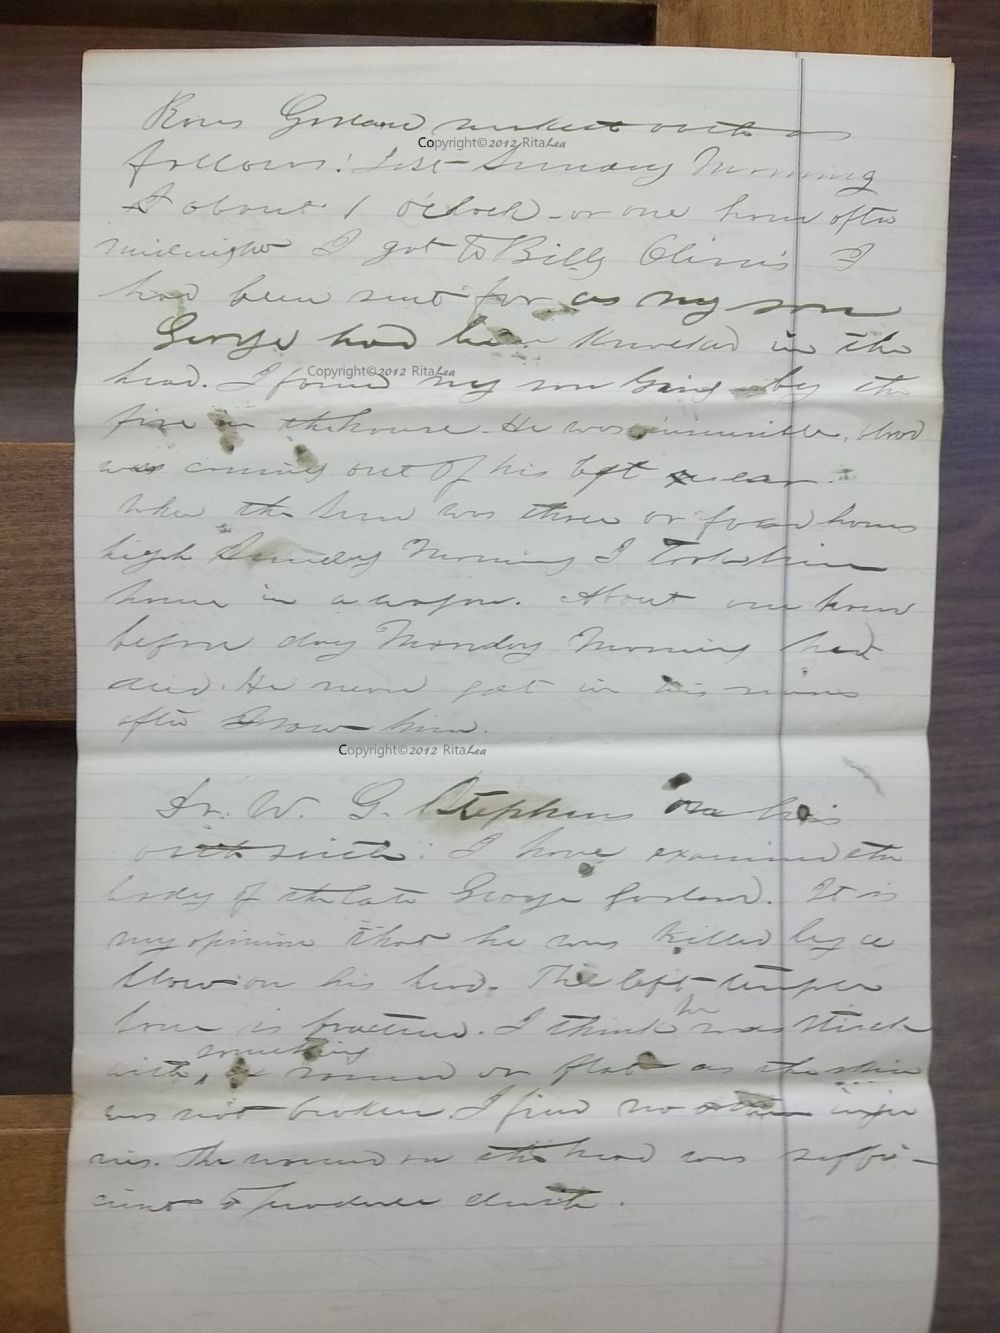 Garland makes oath as
follows: Last Sunday Morning
about 1 o'clock - or one hour after
midnight I got to Billy I
had been sent for as my son
George had been Knocked in the
head. I found my son lying by the
fire in the house. He was insensible, blood
was coming out of his left ear.
When the Sun was three or four hours
high Sunday Morning I took him
home in a wagon. About one hour
before day Monday Morning he
died. He never got in his
after I saw him.
Dr. W. G. Stephens on his
oath saith: I have examined the
body of the late George Garland. It is
my opinion that he was Killed by a
blow on his head. The left temple
bone is fractured. I think he was struck
with, something round or flat as the skin
was not broken. I find no inju
ries. The wound on the head was suffi-
cient to produce death.
Copyright©2012 RitaLea
Copyright©2012 RitaLea
Copyright©2012 RitaLea